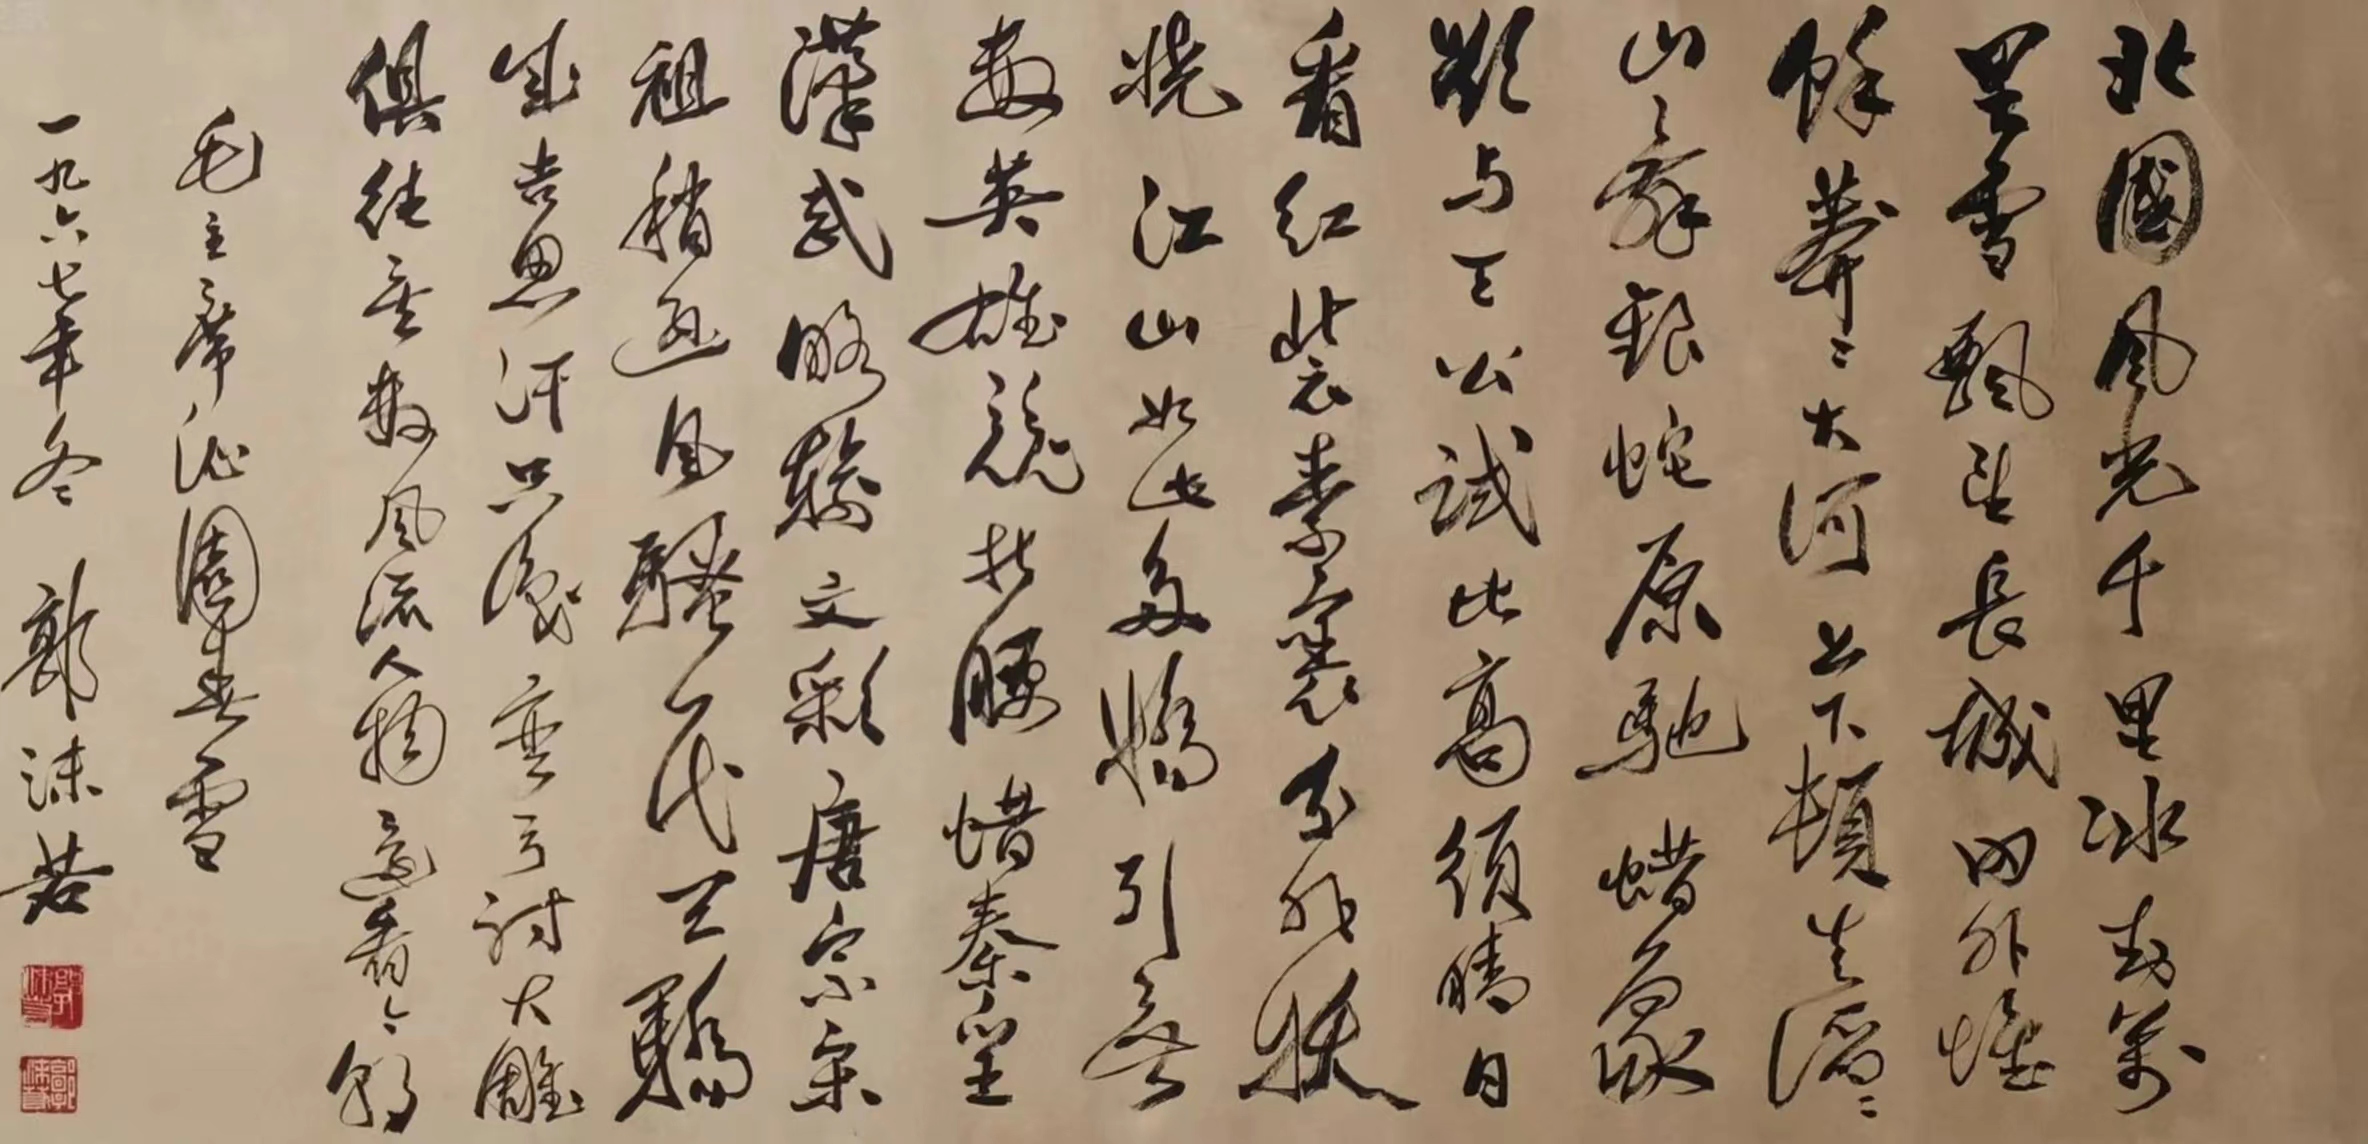 北國風光千里冰封萬
里雪飄望長城內外惟
餘莽〻大河上下頓失滔〻
山舞銀蛇原馳蜡象
欲与天公試比高須晴日
看紅裝素裹分外妖
嬈江山如此多嬌引無
數英雄競折腰惜秦皇
漢武略輸文彩唐宗宋
祖稍遜風騷一代天驕
成吉思汗只識彎弓射大雕
俱往矣數風流人物還看今朝
毛主席沁園春雪
一九六七年冬 郭沫若
郭沫若
郭沫若